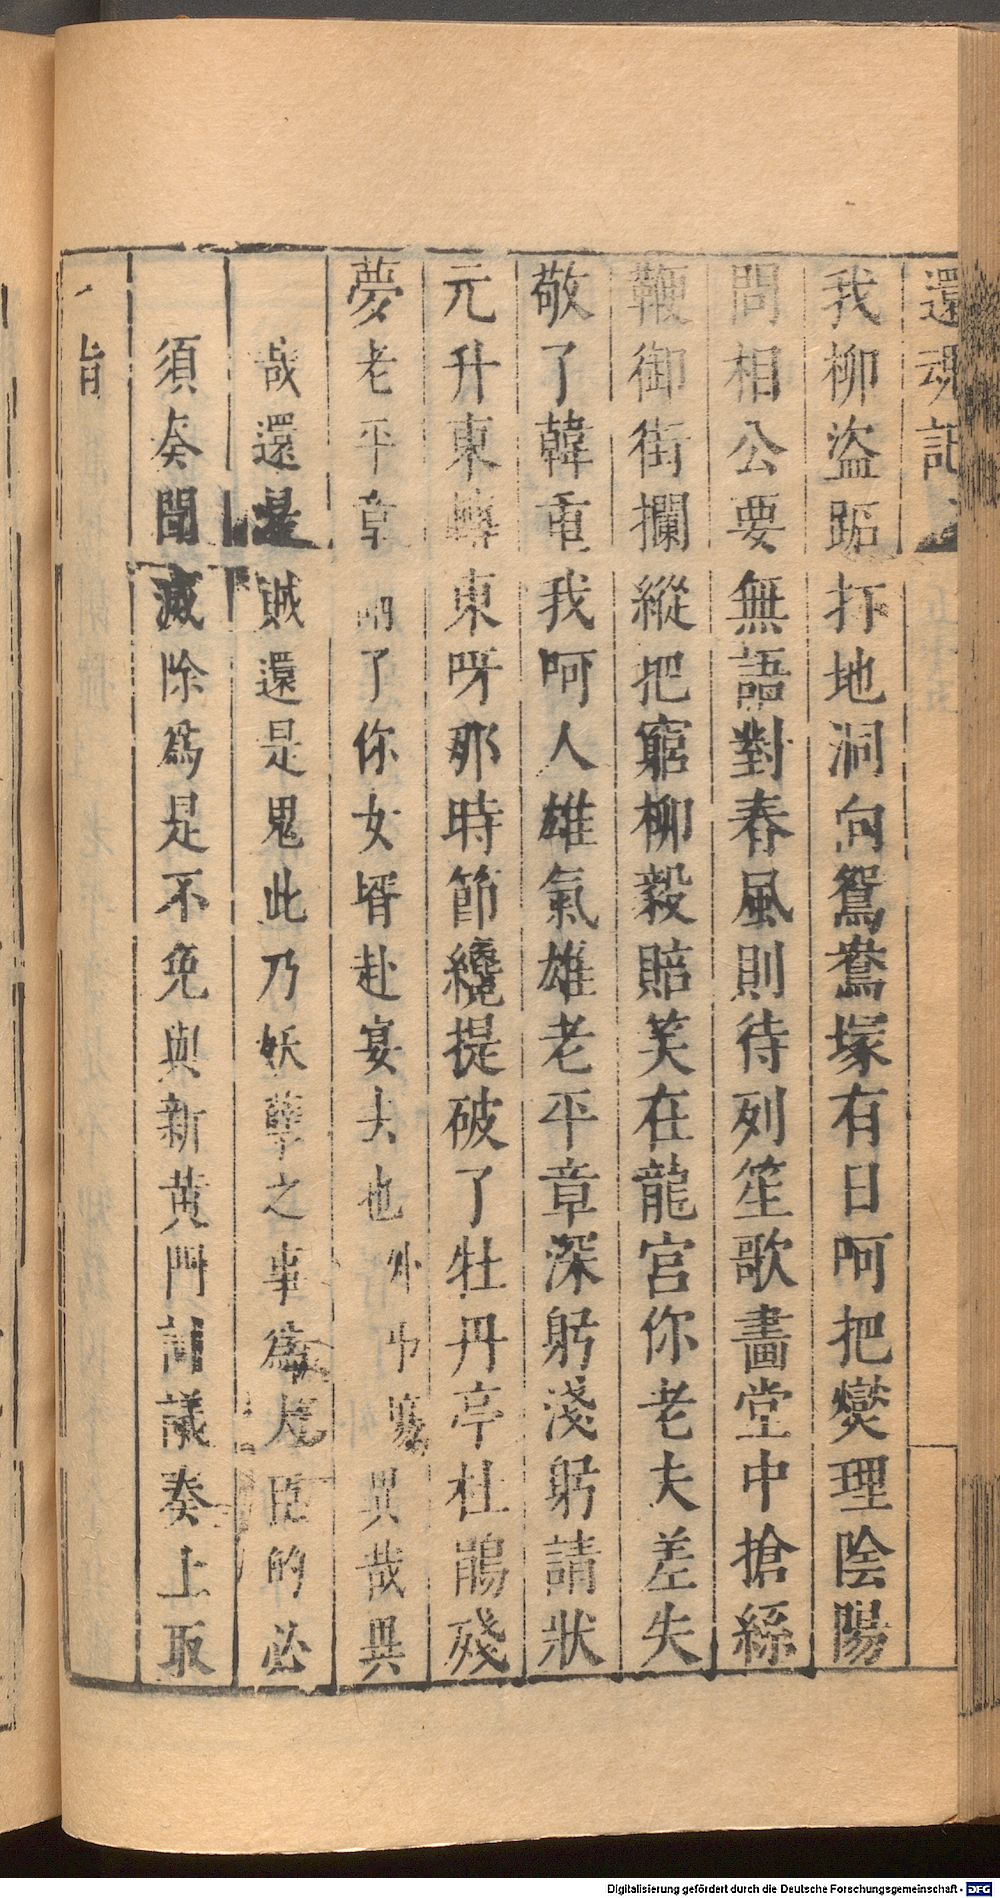 還魂記
我柳盜跖打地洞向鴛鴦塚有日呵把爕理陰陽
問相公要無語對春風則待列笙歌畫堂中搶絲
鞭御街攔縱把窮柳毅賠笑在龍宮你老夫差失
敬了韓重我呵人雄氣雄老平章深躬淺躬請狀
元升東轉東呀那時節纔提破了牡丹亭杜鵑殘
夢老平章 了你女婿赴宴去也 外 異哉異
哉還是賊還是鬼此乃妖孽之事為大臣的必
須奏聞滅除爲是不免與新黃門 議奏上取
旨
Digitalisierung gefördert durch die Deutsche Forschungsgemeinschaft - DFG